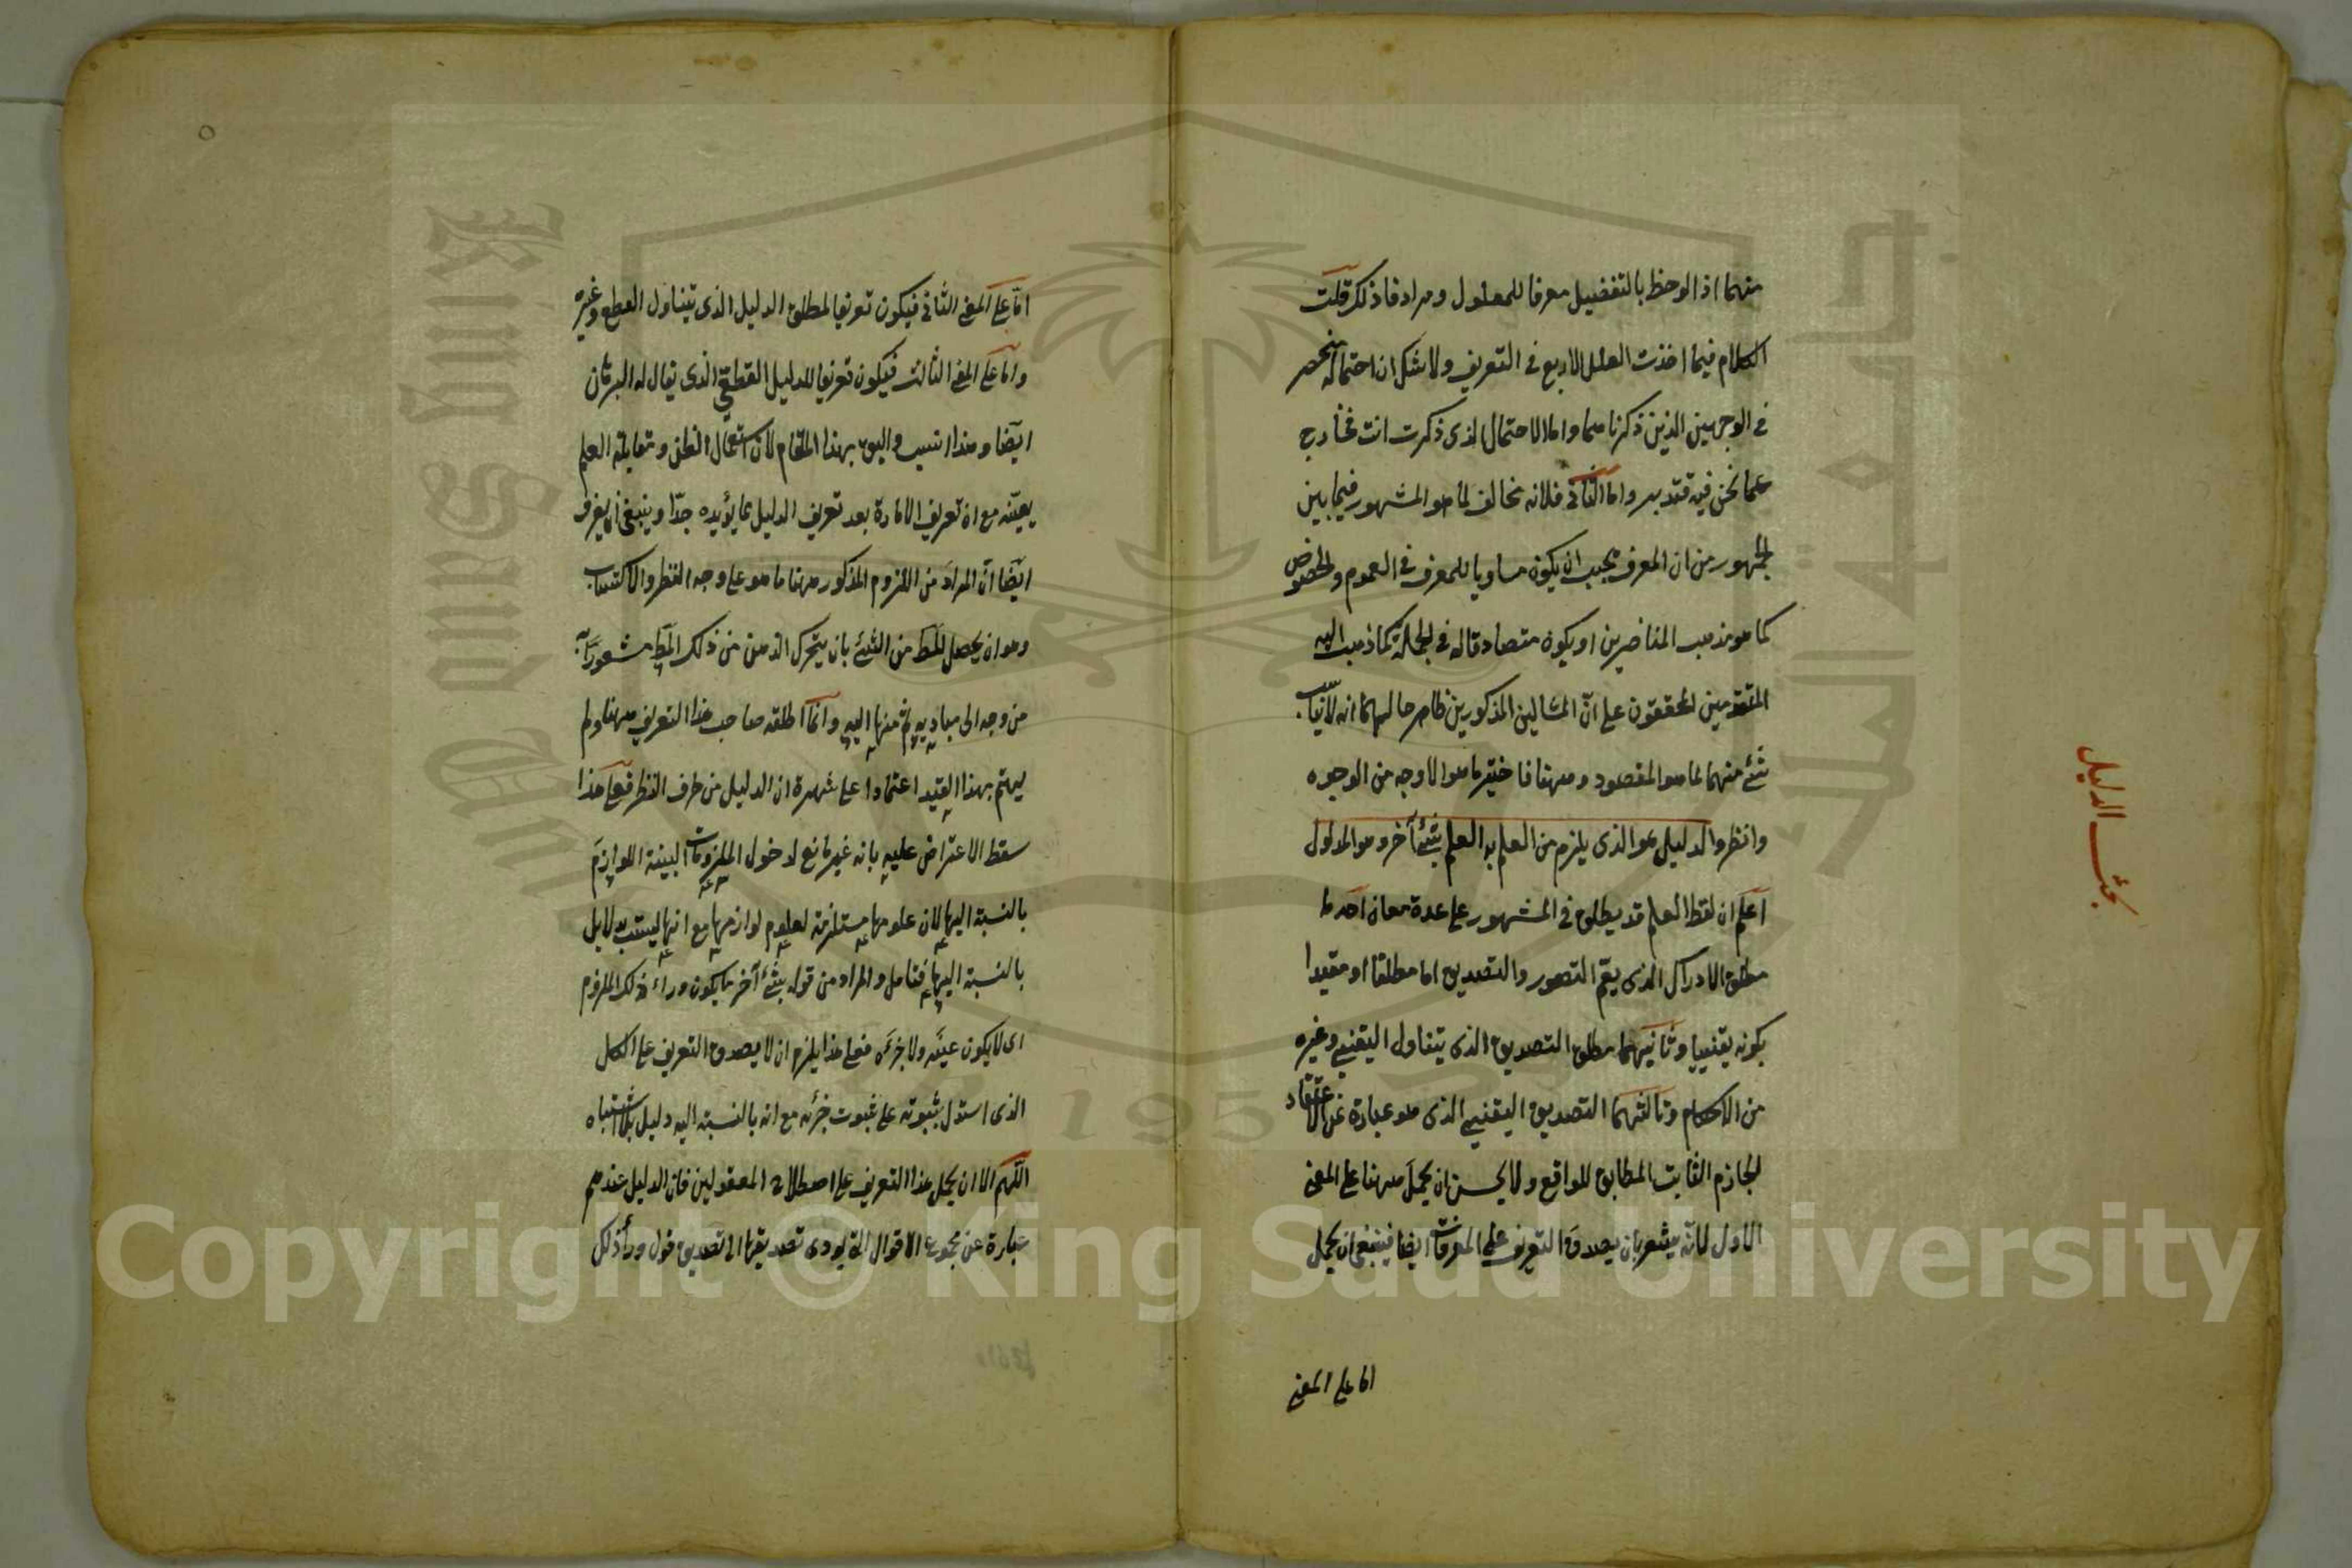 منهما اذا لوحظ بالتفصيل معرفا للمعلول ومرادفا لذلك قلت
الكلام فيما اخذت العلل الاربع في التعريف ولا شك ان احتماله منحصر
في الوجهين الذين ذكرناهما واما الاحتمال الذى ذكرت انت فخارج
عما نحن فيه فتدبر واما الثاني فلانه مخالف لما هو المشهور فيما بين
الجمهور من ان المعرف يجب ان يكون مساويا للمعرف في العموم والخصوص
كما هو مذهب المتاخرين او يكون متصادقا له في الجملة كما ذهب اليه
المتقدمين المحققون على ان المثالين المذكورين ظاهر حالهما انه لا يناسب
شئ منهما لما هو المقصود وههنا فاختير ما هو الاوجه من الوجوه
وانظر والدليل هو الذى يلزم من العلم به العلم بشئ آخر وهو المدلول
اعلم ان لفظ العلم قد يطلق في المشهور على عدة معان احدها
مطلق الادراك الذى يعم التصور والتصديق اما مطلقا او مقيدا
بكونه يقينيا وثانيهما مطلق التصديق الذى يتناول اليقيني وغيره
من الاحكام وثالثهما التصديق اليقيني الذى هو عبارة عن الاعتقاد
الجازم الثابت المطابق للواقع ولا يحسن ان يحمل ههنا على المعنى
الاول لانه يشعر بان يصدق التعريف على المعرفات ايضا فينبغي ان يحمل
اما على المعنى
بحث الدليل
اما على المعنى الثاني فيكون تعريفا لمطلق الدليل الذى يتناول القطع وغيره
واما على المعنى الثالث فيكون تعريفا للدليل القطعي الذى يقال له البرهان
ايضا وهذا انسب واليق بهذا المقام لان استعمال الظن ومقابلة العلم
يعينه مع ان تعريف الامارة بعد تعريف الدليل مما يؤيده جدا وينبغي ان يعرف
ايضا ان المراد من اللزوم المذكور ههنا ما هو على وجه النظر والاكتساب
وهو ان يحصل المط من الشئ بان يتحرك الذهن من ذلك المط مشعورا به
من وجه الى مباديه ثم منها اليه وانما اطلقه صاحب هذا التعريف ههنا ولم
يهتم بهذا القيد اعتمادا على شهرة ان الدليل من طرف النظر فعلى هذا
سقط الاعتراض عليه بانه غير مانع لدخول الملزومات البينة اللوازم
بالنسبة اليها لان علومها مستلزمة لعلوم لوازمها مع انها ليست بدلايل
بالنسبة اليها فتامل والمراد من قوله بشئ آخر ما يكون وراء ذلك الملزوم
اى لا يكون عينه ولا جزءه فعلى هذا يلزم ان لا يصدق التعريف على الكل
الذى استدل بثبوته على ثبوت جزئه مع انه بالنسبة اليه دليل بلا اشتباه
اللهم الا ان يحمل هذا التعريف على اصطلاح المعقولين فان الدليل عندهم
عبارة عن مجموع الاقوال التي يودى تصديقها الى تصديق قول وراء ذلك
Copyright © King Saud University